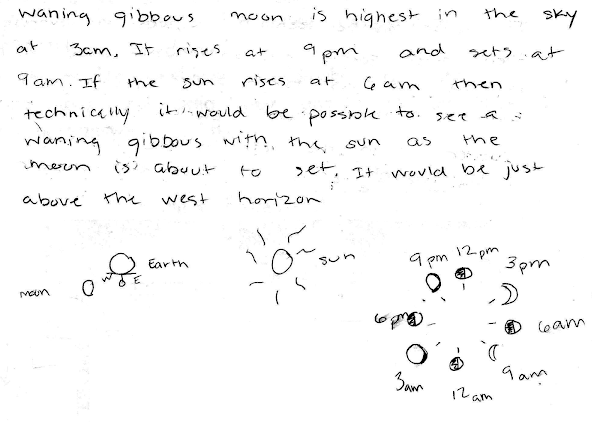 waning gibbous moon is highest in the sky
at 3am. It rises at 9pm and sets at
9am. If the sun rises at 6am then
technically it would be possible to see a
waning gibbous with the sun as the
moon is about to set. It would be just
above the west horizon
moon
W
E
Earth
sun
9pm
12pm
3pm
6pm
6am
3am
12am
9am